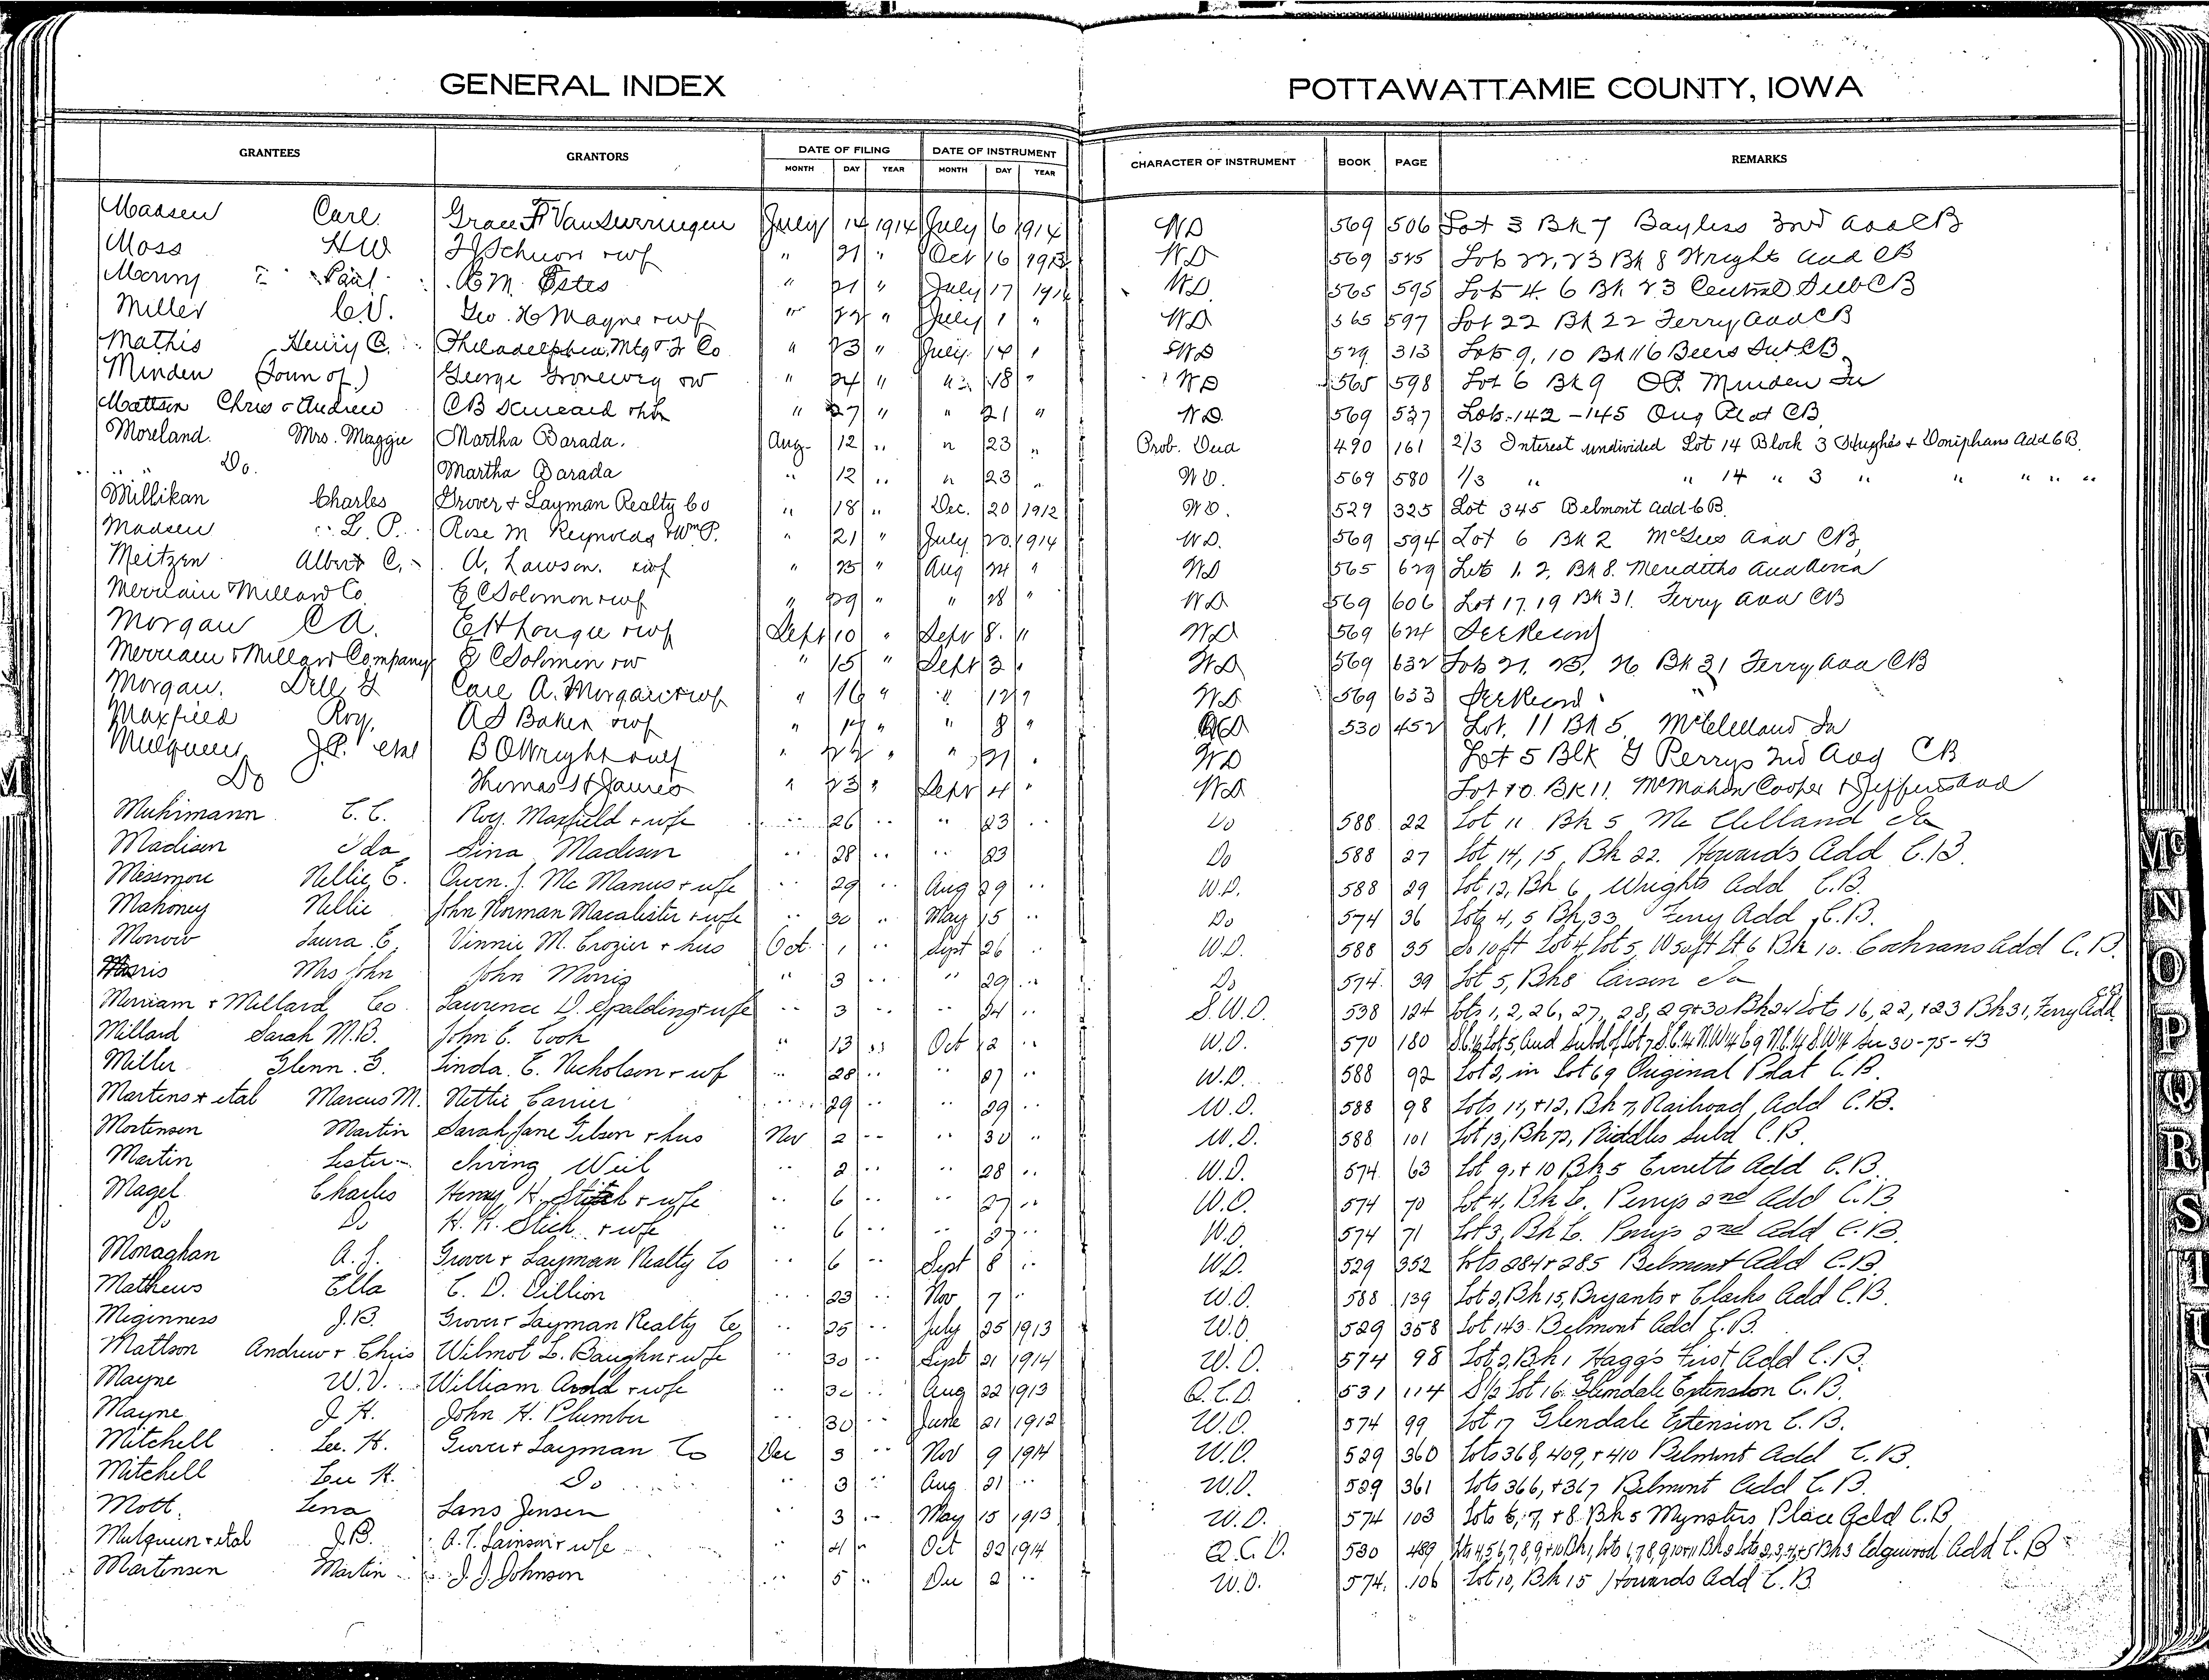 GENERAL INDEX
POTTAWATTAMIE COUNTY, IOWA
GRANTEES GRANTORS DATE OF FILING DATE OF INSTRUMENT CHARACTER OF INSTRUMENT BOOK PAGE REMARKS
MONTH DAY YEAR MONTH DAY YEAR
Madsen Carl Grace F July 14 1914 July 6 1914 WD 569 506 Lot 3 Bk 7 Bayliss 3rd Add CB
Moss HW " 21 " Oct 16 1913 WD 569 Lots 22, 23 Bk 8 Wrights Add CB
Paul M. Estes " 21 " July 17 1914 WD 565 595 Lots 4, 6 Bk 23 Central Sub CB
Miller C.V. Geo. H Mayne + wf " 22 " July 1 " WD 565 597 Lot 22 Bk 22 Ferry Add CB
Mathis Henry C. Philadelphia Mtg + Tr Co " 23 " July 14 " SWD 529 313 Lots 9, 10 Bk 116 Beers Sub CB
Minden (Town of) George Groneweg " 24 " " 18 " WD 565 598 Lot 6 Bk 9 O.P. Minden Ia
Mattsen Chris + Andrew CB " 27 " " 21 " WD. 569 537 Lots 142-145 Orig Plat CB
Moreland. Mrs. Maggie Martha Barada. Aug 12 " " 23 " Prob. Deed 490 161 2/3 Interest undivided Lot 14 Block 3 Hughes + Doniphans Add C B.
" " Do. Martha Barada " 12 " " 23 " W D. 569 580 1/3 " " 14 " 3 " " " " "
Millikan Charles Grover + Layman Realty Co " 18 " Dec. 20 1912 W D. 529 325 Lot 345 Belmont Add C B.
Madsen L. P. Rose M Reynolds + Wm P. " 21 " July 20 1914 WD. 569 594 Lot 6 Bk 2 McGees Add CB
Meitzen Albert C. A. Lawson. + wf " 25 " Aug 24 " WD 565 629 Lots 1, 2, Bk 8. Merediths Add Avoca
Merriam + Millard Co E C Solomon + wf " 29 " " 28 " WD 569 606 Lot 17, 19 Bk 31. Ferry Add CB
Morgan C A. E H Lougee + wf Sept 10 " Sept 8 " WD 569 624 See Record
Merriam + Millard Company E C Solomon + w " 15 " Sept 3 " WD 569 632 Lots 21, 25, 26 Bk 31 Ferry Add CB
Morgan, Dell G Carl A. Morgan + wf " 16 " " 12 " WD 569 633 See Record
Maxfield Roy A S Baker + wf " 17 " " 8 " 530 452 Lot 11 Bk 5. McClelland Ia
Mulqueen J.P. etal B O Wright + wf " 22 " " 21 " WD Lot 5 Blk G Perrys 2nd Add CB
Do Thomas H James " 23 " Sept 4 " WD Lot 10 Bk 11. McMahon Cooper + Jefferis Add
C. C. Roy Maxfield + wife " 26 " " 23 " Do 588 22 Lot 11 Bk 5 Mc Clelland Ia
Madisen Ida Sina Madisen " 28 " " 23 Do 588 27 Lot 14, 15, Bk 22. Howards Add C.B.
Messmore Nellie E. Owen J. Mc Manus + wife " 29 " Aug 29 " W.D. 588 29 Lot 12, Bk 6, Wrights Add C.B.
Mahoney Nellie John Norman Macalister + wife " 30 " May 15 " Do 574 36 Lots 4, 5 Bk 33 Ferry Add C.B.
Morrow Laura E. Vinnie M. Crozier + hus Oct 1 " Sept 26 " W.D. 588 35 So 10 ft Lot 4, Lot 5, W 50 ft Lt 6 Bk 10. Cochrans Add C.B.
Morris Mrs John John Morris " 3 " " 29 " Do 574 39 Lot 5, Bk 8 Carson Ia
Merriam + Millard Co Lawrence D. Spalding + wife " 3 " " 24 " S.W.D. 538 124 Lots 1, 2, 26, 27, 28, 29 + 30 Bk 24 Lots 16, 22, + 23 Bk 31, Ferry Add C.B.
Millard Sarah M.B. John C. Cook " 13 " Oct 12 " W.D. 570 180 30-75-43
Miller Glenn. G. Linda. E. Nicholson + wf " 28 " " 27 " W.D. 588 92 Lot 2, in Lot 69 Original Plat C.B.
Martens + etal Marcus M. Nettie Carrier " 29 " " 29 " W.D. 588 98 Lots 11, + 12, Bk 7, Railroad Add C.B.
Mortensen Martin Sarah Jane Gilson + hus Nov 2 " " 30 " W.D. 588 101 Lot 13, Bk 72, Riddles Subd C.B.
Martin Lester Irving Weil " 2 " " 28 " W.D. 574 63 Lot 9, + 10 Bk 5 Everetts Add C.B.
Magel Charles Henry H. + wife " 6 " " 27 " W.D. 574 70 Lot 4, Bk G. Perrys 2nd Add C.B.
Do Do H. H. Stich + wife " 6 " " 27 " W.D. 574 71 Lot 3, Bk G. Perrys 2nd Add C.B.
Monaghan A. J. Grover + Layman Realty Co " 6 " Sept 8 " W.D. 529 352 Lots 284 + 285 Belmont Add C.B.
Mathews Ella C. D. Dillion " 23 " Nov 7 " W.D. 588 139 Lot 2, Bk 15, Bryants + Clarks Add C.B.
Meginness J.B. Grover + Layman Realty Co " 25 " July 25 1913 W.D. 529 358 Lot 143 Belmont Add C.B.
Mattson Andrew + Chris Wilmot L. Baughn + wife " 30 " Sept 21 1914 W.D. 574 98 Lot 2, Bk 1 Haggs First Add C.B.
Mayne W.V. William Arnd + wife " 30 " Aug 22 1913 Q.C.D. 531 114 S 1/2 Lot 16 Glendale Extension C.B.
Mayne J H. John H. Plumber " 30 " June 21 1912 W.D. 574 99 Lot 17 Glendale Extension C.B.
Mitchell Lee. H. Grover + Layman Co Dec 3 " Nov 9 1914 W.D. 529 360 Lots 368, 409, + 410 Belmont Add C.B.
Mitchell Lee H. Do " 3 " Aug 21 " W.D. 529 361 Lots 366, + 367 Belmont Add C.B.
Mott, Lena Lans Jensen " 3 " May 15 1913 W.D. 574 103 Lots 6, 7, + 8 Bk 5 Mynsters Place Add C.B.
Mulqueen + etal J.B. A. T. + wife " 4 " Oct 22 1914 Q.C.D. 530 489 Lots 4,5,6,7,8,9, + 10 Bk 1, Lots 6,7,8,9,10 + 11 Bk 2 Lots 2,3,4, + 5 Bk 3 Edgewood Add C.B.
Martensen Martin J. J. Johnson " 5 " Dec 2 " W.D. 574 106 Lot 10, Bk 15 Howards Add C.B.
M
Mc
N
O
P
Q
R
S
T